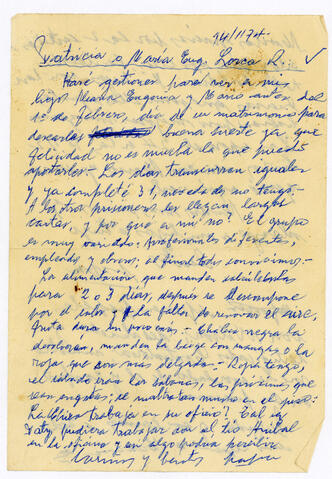 24/1/74.
Patricia o María Eug. Lorca R.
Haré gestiones para ver a mis
hijos María Eugenia y Mario antes del
1º de Febrero, día de su matrimonio para
desearles buena suerte ya que
felicidad no es mucha la que puedo
aportarles.- Los días transcurren iguales
y ya completé 31, novedad no tengo.-
A los otros prisioneros les llegan largas
cartas, y por qué a mí no? El grupo
es muy variado: Profesionales diferentes,
empleados y obreros, al final todos convivimos.-
La alimentación que manden
para 2 o 3 días, después se descompone
por el calor y la falta de renovar el aire,
fruta dura en pocas.- Chaleca negra la
devolveré, manden la beige con mangas o la
roja que son más delgadas.- Ropa tengo,
el sábado irán las sábanas, las próximas que
sean; se maltratan mucho en el piso.-
trabaja en su oficio? Tal vez
Paty pudiera trabajar con el tío Aníbal
en la oficina y en algo podría percibir
Cariños y besos Papá